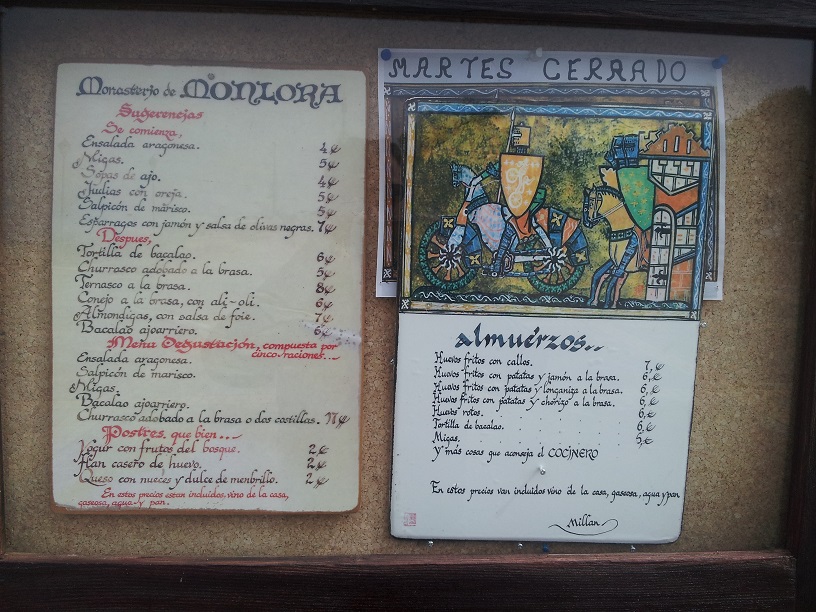 Monasterio de MONLORA
Sugerencias
Se comienza,
Ensalada aragonesa. 4€
Migas. 5€
Sopas de ajo. 4€
Judias con oreja. 5€
Salpicón de marisco. 5€
Esparragos con jamón y salsa de olivas negras. 7€
Despues,
Tortilla de bacalao. 6€
Churrasco adobado a la brasa. 5€
Ternasco a la brasa. 8€
Conejo a la brasa, con ali-oli. 6€
Almondigas, con salsa de foie. 7€
Bacalao ajoarriero. 6€
Menu Degustación, compuesta por
cinco raciones...
Ensalada aragonesa.
Salpicón de marisco.
Migas.
Bacalao ajoarriero.
Churrasco adobado a la brasa o dos costillas. 11€
Postres, que bien...
Yogur con frutos del bosque. 2€
Flan casero de huevo. 2€
Queso con nueces y dulce de membrillo. 2€
En estos precios estan incluidos, vino de la casa,
gaseosa, agua y pan.
MARTES CERRADO
almuérzos..
Huevos fritos con callos. 7,€
Huevos fritos con patatas y jamón a la brasa. 6,€
Huevos fritos con patatas y longaniza a la brasa. 6,€
Huevos fritos con patatas y chorizo a la brasa. 6,€
Huevos rotos. 6,€
Tortilla de bacalao. 6,€
Migas. 5,€
Y más cosas que aconseja el COCINERO
En estos precios van incluidos vino de la casa, gaseosa, agua y pan
Millan